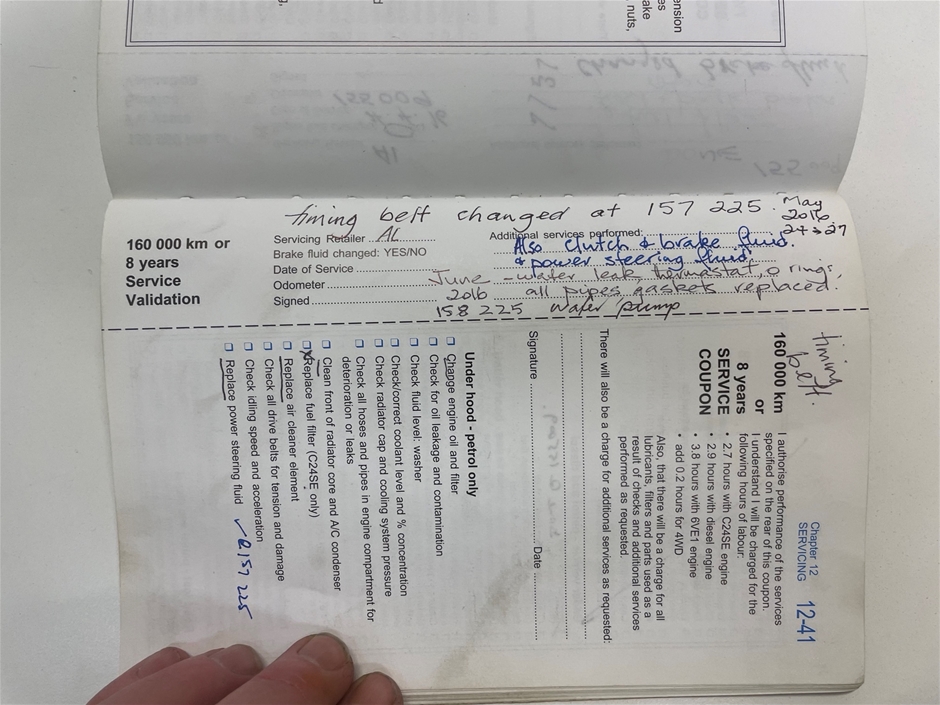 timing belt changed at 157 225. May
2016
24→27
160 000 km or
8 years
Service
Validation
Servicing Retailer AL
Brake fluid changed: YES/NO
Date of Service
Odometer
Signed
Additional services performed:
Also clutch & brake fluid.
& power steering fluid
June - water leak, thermastat, o rings,
2016 all pipes gaskets replaced.
158 225 water pump
timing
belt.
Chapter 12
SERVICING 12-41
160 000 km
or
8 years
SERVICE
COUPON
I authorise performance of the services
specified on the rear of this coupon.
I understand I will be charged for the
following hours of labour:
• 2.7 hours with C24SE engine
• 2.9 hours with diesel engine
• 3.8 hours with 6VE1 engine
• add 0.2 hours for 4WD
Also, that there will be a charge for all
lubricants, filters and parts used as a
result of checks and additional services
performed as requested.
There will also be a charge for additional services as requested:
Signature Date
Under hood - petrol only
Change engine oil and filter
Check for oil leakage and contamination
Check fluid level: washer
Check/correct coolant level and % concentration
Check radiator cap and cooling system pressure
Check all hoses and pipes in engine compartment for
deterioration or leaks
Clean front of radiator core and A/C condenser
Replace fuel filter (C24SE only)
Replace air cleaner element
Check all drive belts for tension and damage
Check idling speed and acceleration
Replace power steering fluid ✓@157 225
ension
es
ake
nuts,